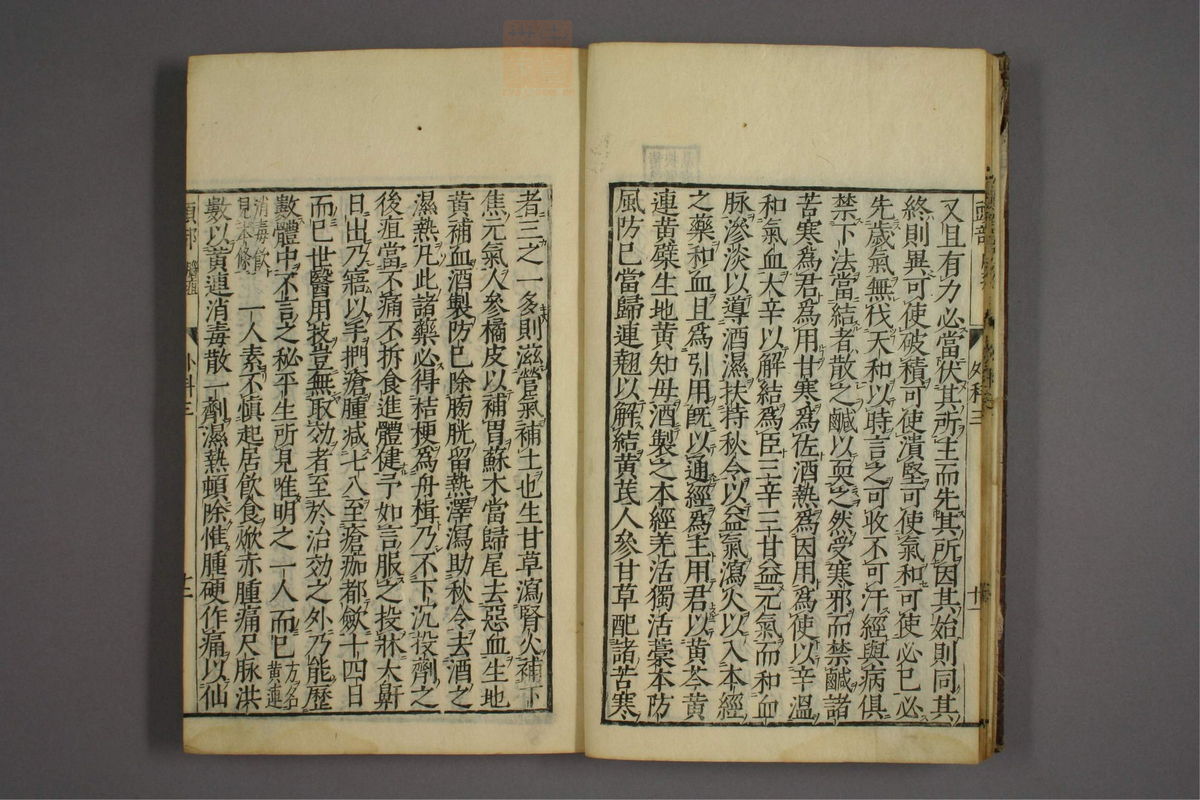 又且有力必當伏其所主而先其所因其始則同其
終則異可使破積可使潰堅可使氣和可使必已必
先歲氣無伐天和以時言之可收不可汗經與病俱
禁下法當結者散之鹹以耎之然受寒邪而禁鹹諸
苦寒爲君爲用甘寒爲佐酒熱爲因用爲使以辛溫
和氣血大辛以解結爲臣三辛三甘益元氣而和血
脉滲淡以導酒濕扶持秋令以益氣瀉火以入本經
之藥和血且爲引用旣以通經爲主用君以黃芩黃
連黃檗生地黃知母酒製之本經羌活獨活藁本防
風防已當歸連翹以解結黃芪人參甘草配諸苦寒
外科三
者三之一多則滋營氣補土也生甘草瀉腎火補下
焦元氣人參橘皮以補胃蘇木當歸尾去惡血生地
黃補血酒製防已除膀胱留熱澤瀉助秋令去酒之
濕熱凡此諸藥必得桔梗爲舟楫乃不下沉投劑之
後疽當不痛不拆食進體健予如言服之投牀大鼾
日出乃寤以手捫瘡腫减七八至瘡痂都斂十四日
而已世醫用技豈無取効者至於治効之外乃能歷
數體中不言之秘平生所見唯明之一人而已方名黃連
消毒飲見本條 一人素不愼起居飲食焮赤腫痛尺脉洪
數以黃連消毒散一劑濕熱頓除惟腫硬作痛以仙
外科三